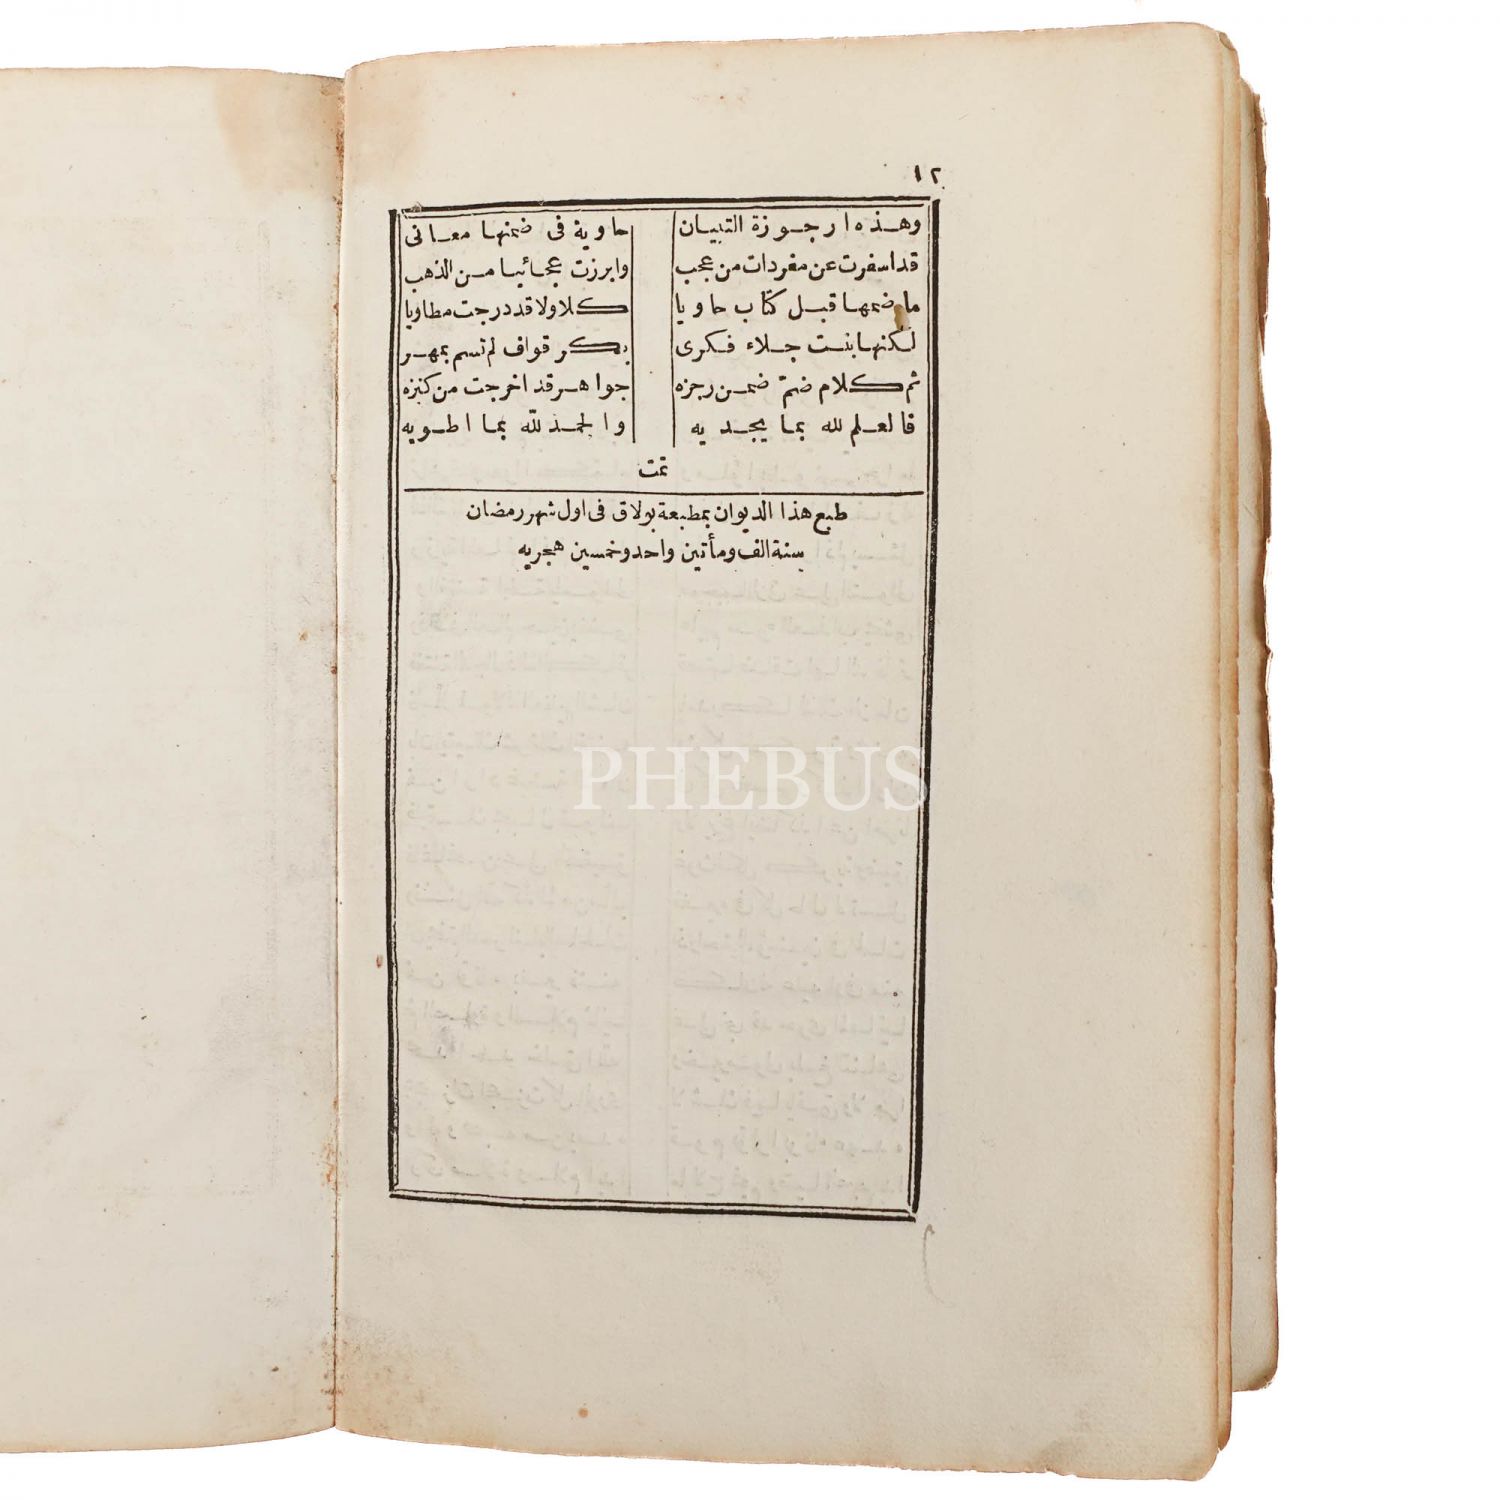 ١٢
وهذه ارجوزة التبيان حاوية فى ضمنها معانى
قد اسفرت عن مفردات من عجب وابرزت عجائبا من الذهب
ما ضمها قبل كتاب حاويا كلا ولا قد درجت مطاويا
لكنها بنت جلاء فكرى بكر قواف لم تسم بمهر
ثم كلام ضم ضمن رجزه جواهر قد اخرجت من كنزه
فالعلم لله بما يجديه والحمد لله بما اطويه
تمت
طبع هذا الديوان بمطبعة بولاق فى اول شهر رمضان
سنة الف ومأتين واحد وخمسين هجريه
PHEBUS